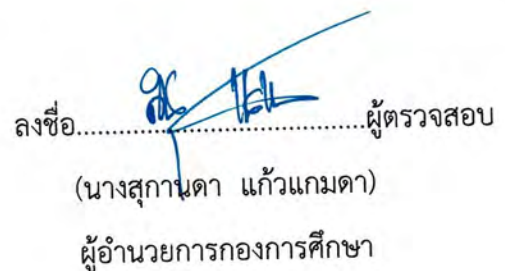 ลงชื่อ..........................................ผู้ตรวจสอบ
(นางสุกานดา แก้วแกมดา)
ผู้อำนวยการกองการศึกษา